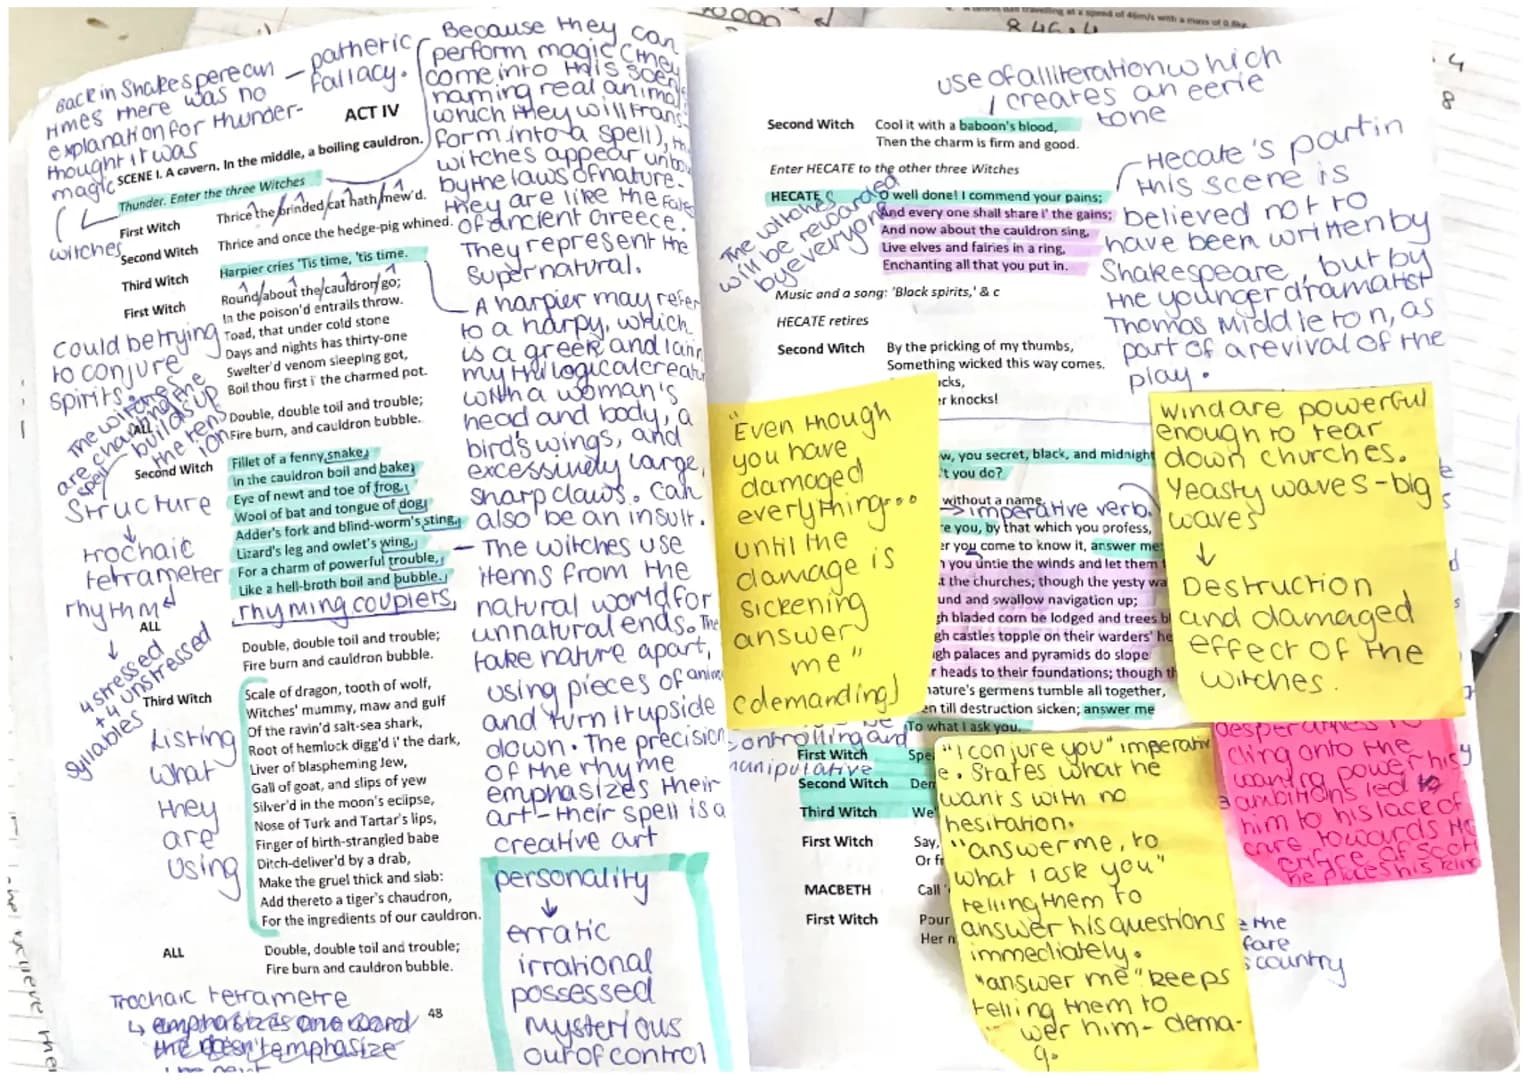 Back in Shakesperean
times there was no
explanation for thunder-
thought it was
magic
— pathetic
fallacy.
ACT IV
SCENE I. A cavern. In the middle, a boiling cauldron.
Thunder. Enter the three Witches
witches
First Witch Thrice the brinded cat hath mew'd.
Second Witch Thrice and once the hedge-pig whined.
Third Witch Harpier cries 'Tis time, 'tis time.
First Witch Round about the cauldron go;
In the poison'd entrails throw.
Toad, that under cold stone
Days and nights has thirty-one
Swelter'd venom sleeping got,
Boil thou first i' the charmed pot.
Could be trying
to conjure
spirits.
The witches
are chanting the
spell — builds up
the tens
ion
ALL Double, double toil and trouble;
Fire burn, and cauldron bubble.
Second Witch Fillet of a fenny snake,
In the cauldron boil and bake;
Eye of newt and toe of frog,
Wool of bat and tongue of dog,
Adder's fork and blind-worm's sting,
Lizard's leg and owlet's wing,
For a charm of powerful trouble,
Like a hell-broth boil and bubble.
rhyming couplets
Structure
trochaic
tetrameter
rhythm
4 stressed
+ 4 unstressed
syllables
ALL Double, double toil and trouble;
Fire burn and cauldron bubble.
Third Witch Scale of dragon, tooth of wolf,
Witches' mummy, maw and gulf
Of the ravin'd salt-sea shark,
Root of hemlock digg'd i' the dark,
Liver of blaspheming Jew,
Gall of goat, and slips of yew
Silver'd in the moon's eclipse,
Nose of Turk and Tartar's lips,
Finger of birth-strangled babe
Ditch-deliver'd by a drab,
Make the gruel thick and slab:
Add thereto a tiger's chaudron,
For the ingredients of our cauldron.
Listing
what
they
are
using
ALL Double, double toil and trouble;
Fire burn and cauldron bubble.
Trochaic tetrametre
↳ emphasizes one word
the doesn't emphasize
48
Because they can
perform magic (they
come into this scene
naming real animal
which they will trans
form into a spell), th
witches appear unbou
by the laws of nature.
they are like the Fates
of ancient Greece.
They represent the
supernatural.
A harpier may refer
to a harpy, which
is a greek and latin
mythilogical creatur
with a woman's
head and body, a
bird's wings, and
excessively large,
sharp claws. Can
also be an insult.
— The witches use
items from the
natural world for
unnatural ends. The
take nature apart,
using pieces of anim
and turn it upside
down. The precision
of the rhyme
emphasizes their
art - their spell is a
creative art
personality
erratic
irrational
possessed
mysterious
out of control
use of alliteration which
creates an eerie
tone
Second Witch Cool it with a baboon's blood,
Then the charm is firm and good.
Enter HECATE to the other three Witches
HECATE O well done! I commend your pains;
And every one shall share i' the gains;
And now about the cauldron sing,
Live elves and fairies in a ring,
Enchanting all that you put in.
The witches
will be rewarded
by everyone
Music and a song: 'Black spirits,' & c
HECATE retires
Second Witch By the pricking of my thumbs,
Something wicked this way comes.
cks,
er knocks!
Hecate's part in
this scene is
believed not to
have been written by
Shakespeare, but by
the younger dramatist
Thomas Middleton, as
part of a revival of the
play.
"Even though
you have
damaged
everything...
until the
damage is
sickening
answer
me"
(demanding)
w, you secret, black, and midnight
't you do?
without a name.
imperative verb.
re you, by that which you profess,
er you come to know it, answer me:
you untie the winds and let them
t the churches; though the yesty wa
und and swallow navigation up;
gh bladed corn be lodged and trees bl
gh castles topple on their warders' he
gh palaces and pyramids do slope
r heads to their foundations; though th
nature's germens tumble all together,
en till destruction sicken; answer me
To what I ask you.
wind are powerful
enough to tear
down churches.
Yeasty waves - big
waves
Destruction
and damaged
effect of the
witches.
controlling and
manipulative
First Witch Spe
Second Witch Dem
Third Witch We'
First Witch Say,
Or fr
MACBETH Call
First Witch Pour
Her n
"I conjure you" imperativ
e. States what he
wants with no
hesitation.
"answer me, to
what I ask you"
telling them to
answer his questions
immediately.
"answer me" keeps
telling them to
wer him - dema-
g.
cling onto the
power his
ambitions led
him to his lack of
care towards
country